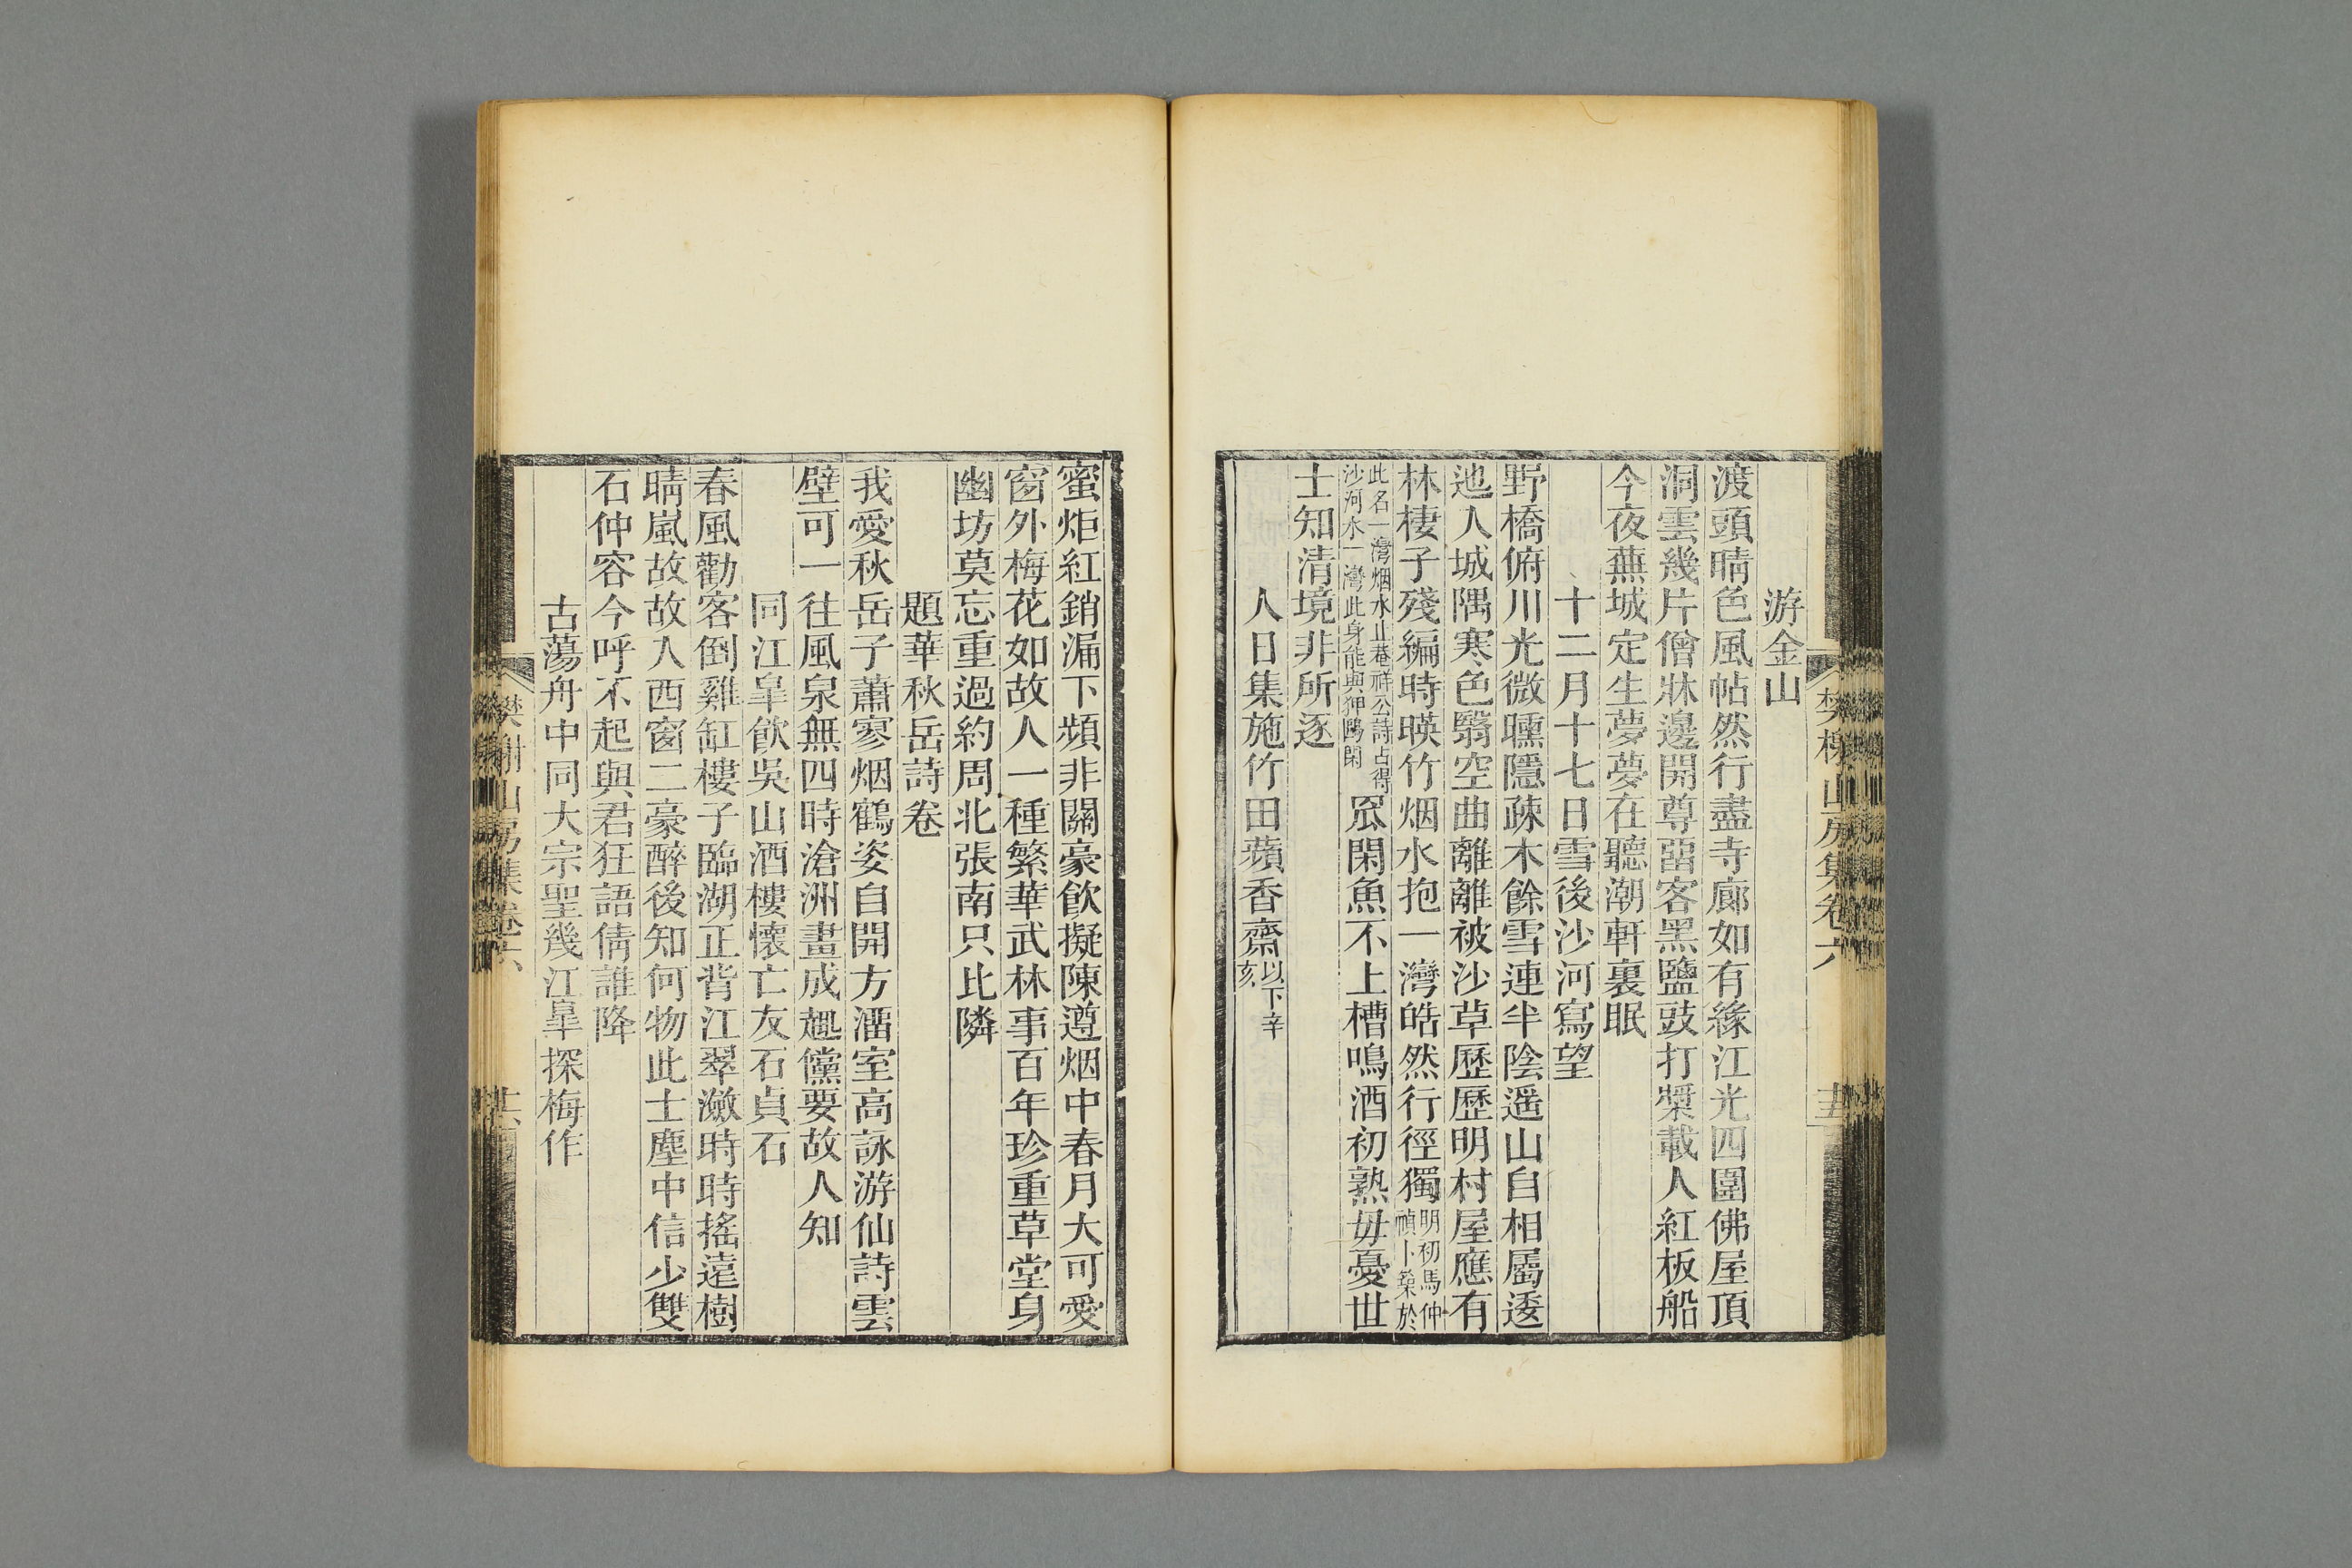 樊榭山房集卷六
游金山
渡頭晴色風帖然行盡寺廊如有緣江光四圍佛屋頂
洞雲幾片僧牀邊開尊畱客黑鹽豉打槳載人紅板船
今夜蕪城定生夢夢在聽潮軒裏眠
十二月十七日雪後沙河寫望
野橋俯川光微曛隱疎木餘雪連半陰遥山自相屬逶
迆入城隅寒色翳空曲離離被沙草歷歷明村屋應有
林棲子殘編時暎竹烟水抱一灣皓然行徑獨明初馬仲禎卜築於
此名一灣烟水止菴祥公詩占得沙河水一灣此身能與狎鷗閑眾閑魚不上槽鳴酒初熟毋憂世
士知清境非所逐
人日集施竹田蘋香齋以下辛亥
蜜炬紅銷漏下頻非關豪飲擬陳遵烟中春月大可愛
窗外梅花如故人一種繁華武林事百年珍重草堂身
幽坊莫忘重過約周北張南只比隣
題華秋岳詩卷
我愛秋岳子蕭寥烟鶴姿自開方畱室高詠游仙詩雲
壁可一往風泉無四時滄洲畫成趣儻要故人知
同江皐飲吳山酒樓懷亡友石貞石
春風勸客倒雞缸樓子臨湖正背江翠瀲時時搖遠樹
晴嵐故故入西窗二豪醉後知何物此士塵中信少雙
石仲容今呼不起與君狂語倩誰降
古蕩舟中同大宗聖幾江皐探梅作
樊榭山房集卷六